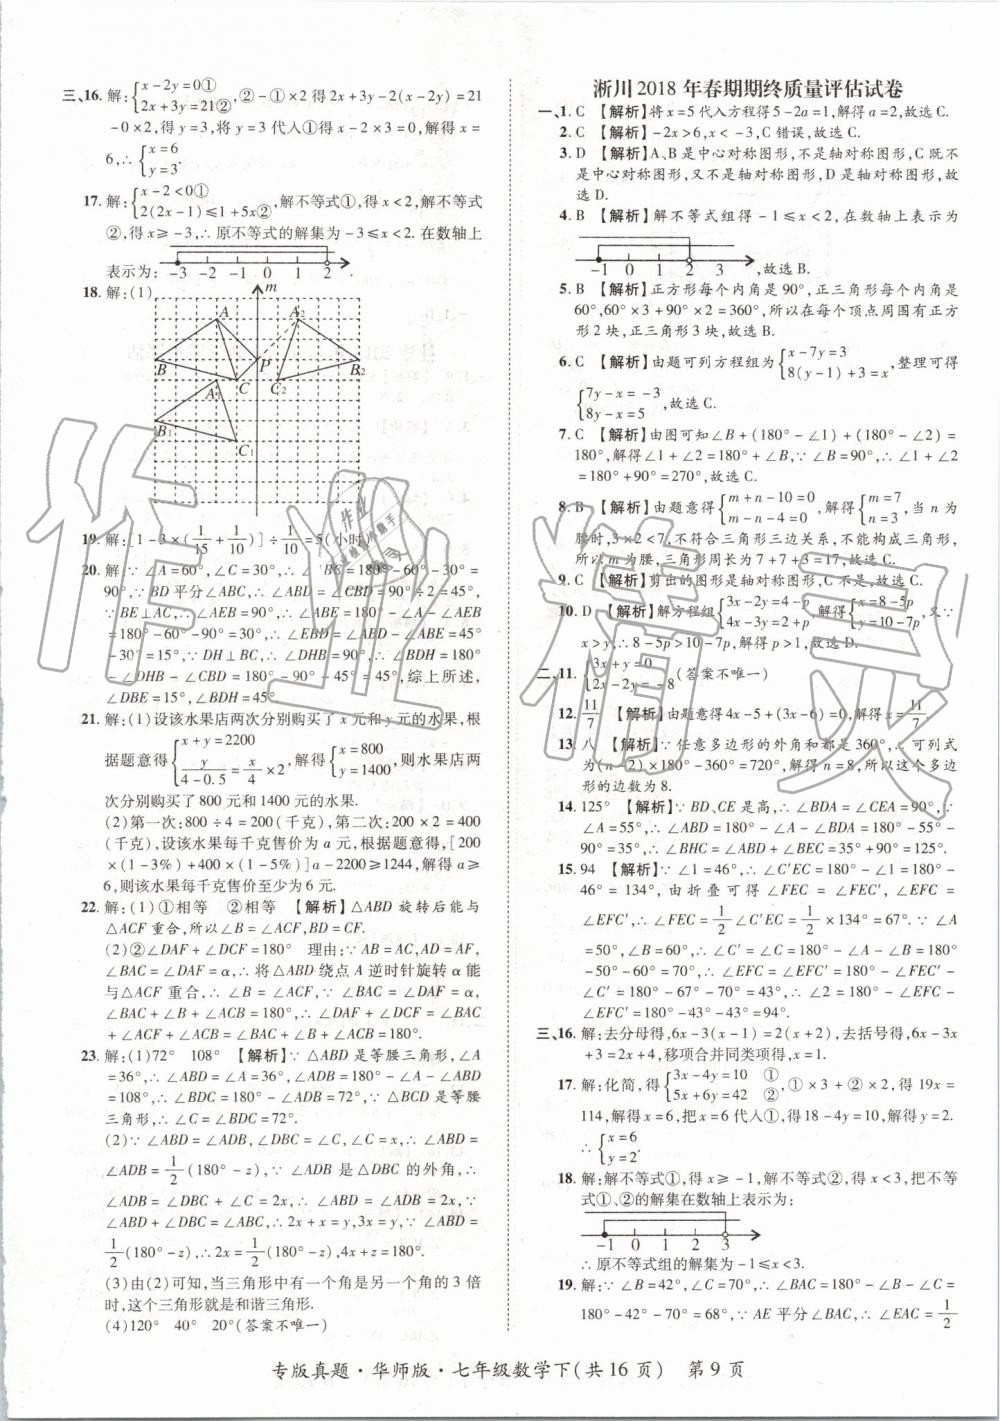 三、16. 解:{x-2y=0① 2x+3y=21②,②-①×2得2x+3y-2(x-2y)=21
-0×2,得y=3,将y=3代入①得x-2×3=0,解得x=
6,∴{x=6 y=3.
17. 解:{x-2<0① 2(2x-1)≤1+5x②,解不等式①,得x<2,解不等式
②,得x≥-3,∴原不等式的解集为-3≤x<2.在数轴上
表示为: -3 -2 -1 0 1 2 .
18. 解:(1)
m
A A2
B P B2
A1 C C2
B1
C1
19. 解:[1-3×(1/15+1/10)]÷1/10=5(小时)
20. 解:∵∠A=60°,∠C=30°,∴∠ABC=180°-60°-30°=
90°,∵BD平分∠ABC,∴∠ABD=∠CBD=90°÷2=45°,
∵BE⊥AC,∴∠AEB=90°,∴∠ABE=180°-∠A-∠AEB
=180°-60°-90°=30°,∴∠EBD=∠ABD-∠ABE=45°
-30°=15°,∵DH⊥BC,∴∠DHB=90°,∴∠BDH=180°
-∠DHB-∠CBD=180°-90°-45°=45°,综上所述,
∠DBE=15°,∠BDH=45°.
21. 解:(1)设该水果店两次分别购买了x元和y元的水果,根
据题意得{x+y=2200 y/(4-0.5)=x/4×2,解得{x=800 y=1400,则水果店两
次分别购买了800元和1400元的水果.
(2)第一次:800÷4=200(千克),第二次:200×2=400
(千克),设该水果每千克售价为a元,根据题意得,[200
×(1-3%)+400×(1-5%)]a-2200≥1244,解得a≥
6,则该水果每千克售价至少为6元.
22. 解:(1)①相等 ②相等 【解析】△ABD旋转后能与
△ACF重合,所以∠B=∠ACF,BD=CF.
(2)②∠DAF+∠DCF=180° 理由:∵AB=AC,AD=AF,
∠BAC=∠DAF=α,∴将△ABD绕点A逆时针旋转α能
与△ACF重合,∴∠B=∠ACF,∵∠BAC=∠DAF=α,
∠BAC+∠B+∠ACB=180°,∴∠DAF+∠DCF=∠BAC
+∠ACF+∠ACB=∠BAC+∠B+∠ACB=180°.
23. 解:(1)72° 108° 【解析】∵△ABD是等腰三角形,∠A
=36°,∴∠ABD=∠A=36°,∠ADB=180°-∠A-∠ABD
=108°,∴∠BDC=180°-∠ADB=72°,∵△BCD是等腰
三角形,∴∠C=∠BDC=72°.
(2)∵∠ABD=∠ADB,∠DBC=∠C,∠C=x,∴∠ABD=
∠ADB=1/2(180°-z),∵∠ADB是△DBC的外角,∴
∠ADB=∠DBC+∠C=2x,∴∠ABD=∠ADB=2x,∵
∠ABD+∠DBC=∠ABC,∴2x+x=y,3x=y,∵∠ABD=
1/2(180°-z),∴2x=1/2(180°-z),4x+z=180°.
(3)由(2)可知,当三角形中有一个角是另一个角的3倍
时,这个三角形就是和谐三角形.
(4)120° 40° 20°(答案不唯一)
淅川2018年春期期终质量评估试卷
一、1. C 【解析】将x=5代入方程得5-2a=1,解得a=2,故选C.
2. C 【解析】-2x>6,x<-3,C错误,故选C.
3. D 【解析】A、B是中心对称图形,不是轴对称图形,C既不
是中心对称图形,又不是轴对称图形,D是轴对称图形,故
选D.
4. B 【解析】解不等式组得-1≤x<2,在数轴上表示为
-1 0 1 2 3 ,故选B.
5. B 【解析】正方形每个内角是90°,正三角形每个内角是
60°,60°+60°+60°+90°×2=360°,所以在每个顶点周围有正方
形2块,正三角形3块,故选B.
6. C 【解析】由题可列方程组为{x-7y=3 8(y-1)+3=x,整理可得
{7y-x=-3 8y-x=5,故选C.
7. C 【解析】由图可知∠B+(180°-∠1)+(180°-∠2)=
180°,解得∠1+∠2=180°+∠B,∵∠B=90°,∴∠1+∠2=
180°+90°=270°,故选C.
8. B 【解析】由题意得{m+n-10=0 m-n-4=0,解得{m=7 n=3,当n为
腰时,3×2<7,不符合三角形三边关系,不能构成三角形,
所以m为腰,三角形周长为7+7+3=17,故选C.
9. C 【解析】剪出的图形是轴对称图形,C不是,故选C.
10. D 【解析】解方程组{3x-2y=4-p 4x-3y=2+p,解得{x=8-5p y=10-7p,又∵
x>y,∴8-5p>10-7p,解得p>1,故选D.
二、11. {3x+y=0 2x-2y=-8(答案不唯一)
12. 11/7 【解析】由题意得4x-5+(3x-6)=0,解得x=11/7.
13. 八 【解析】∵任意多边形的外角和都是360°,∴可列式
为(n-2)×180°-360°=720°,解得n=8,所以这个多边
形的边数是8.
14. 125° 【解析】∵BD、CE是高,∴∠BDA=∠CEA=90°,∵
∠A=55°,∴∠ABD=180°-∠A-∠BDA=180°-55°-
90°=35°,∴∠BHC=∠ABD+∠BEC=35°+90°=125°.
15. 94 【解析】∵∠1=46°,∴∠C′EC=180°-∠1=180°-
46°=134°,由折叠可得∠FEC=∠FEC′,∠EFC=
∠EFC′,∴∠FEC=1/2∠C′EC=1/2×134°=67°.∵∠A
=50°,∠B=60°,∴∠C′=∠C=180°-∠A-∠B=180°
-50°-60°=70°,∴∠EFC=∠EFC′=180°-∠FEC′-
∠C′=180°-67°-70°=43°,∴∠2=180°-∠EFC′-
∠EFC=180°-43°-43°=94°.
三、16. 解:去分母得,6x-3(x-1)=2(x+2),去括号得,6x-3x
+3=2x+4,移项合并同类项得,x=1.
17. 解:化简,得{3x-4y=10 ① 5x+6y=42 ②,①×3+②×2,得19x=
114,解得x=6,把x=6代入①,得18-4y=10,解得y=2.
∴{x=6 y=2.
18. 解:解不等式①,得x≥-1,解不等式②,得x<3,把不等
式①、②的解集在数轴上表示为:
-1 0 1 2 3
∴原不等式组的解集为-1≤x<3.
19. 解:∵∠B=42°,∠C=70°,∴∠BAC=180°-∠B-∠C=
180°-42°-70°=68°,∵AE平分∠BAC,∴∠EAC=1/2
专版真题·华师版·七年级数学下(共16页) 第9页
作业精灵